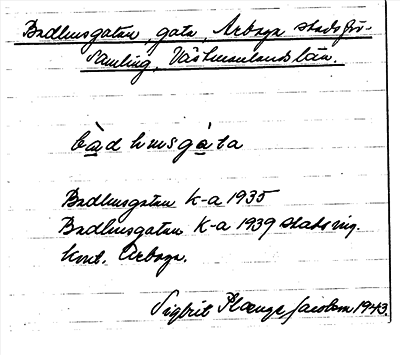 Badhusgatan, gata, Arboga stadsför-
samling, Västmanlands län.
bàdhusgàta
Badhusgatan K-a 1935
Badhusgatan K-a 1939 stadsing.
kont. Arboga.
Sigbrit Plænge Jacobson 1943.